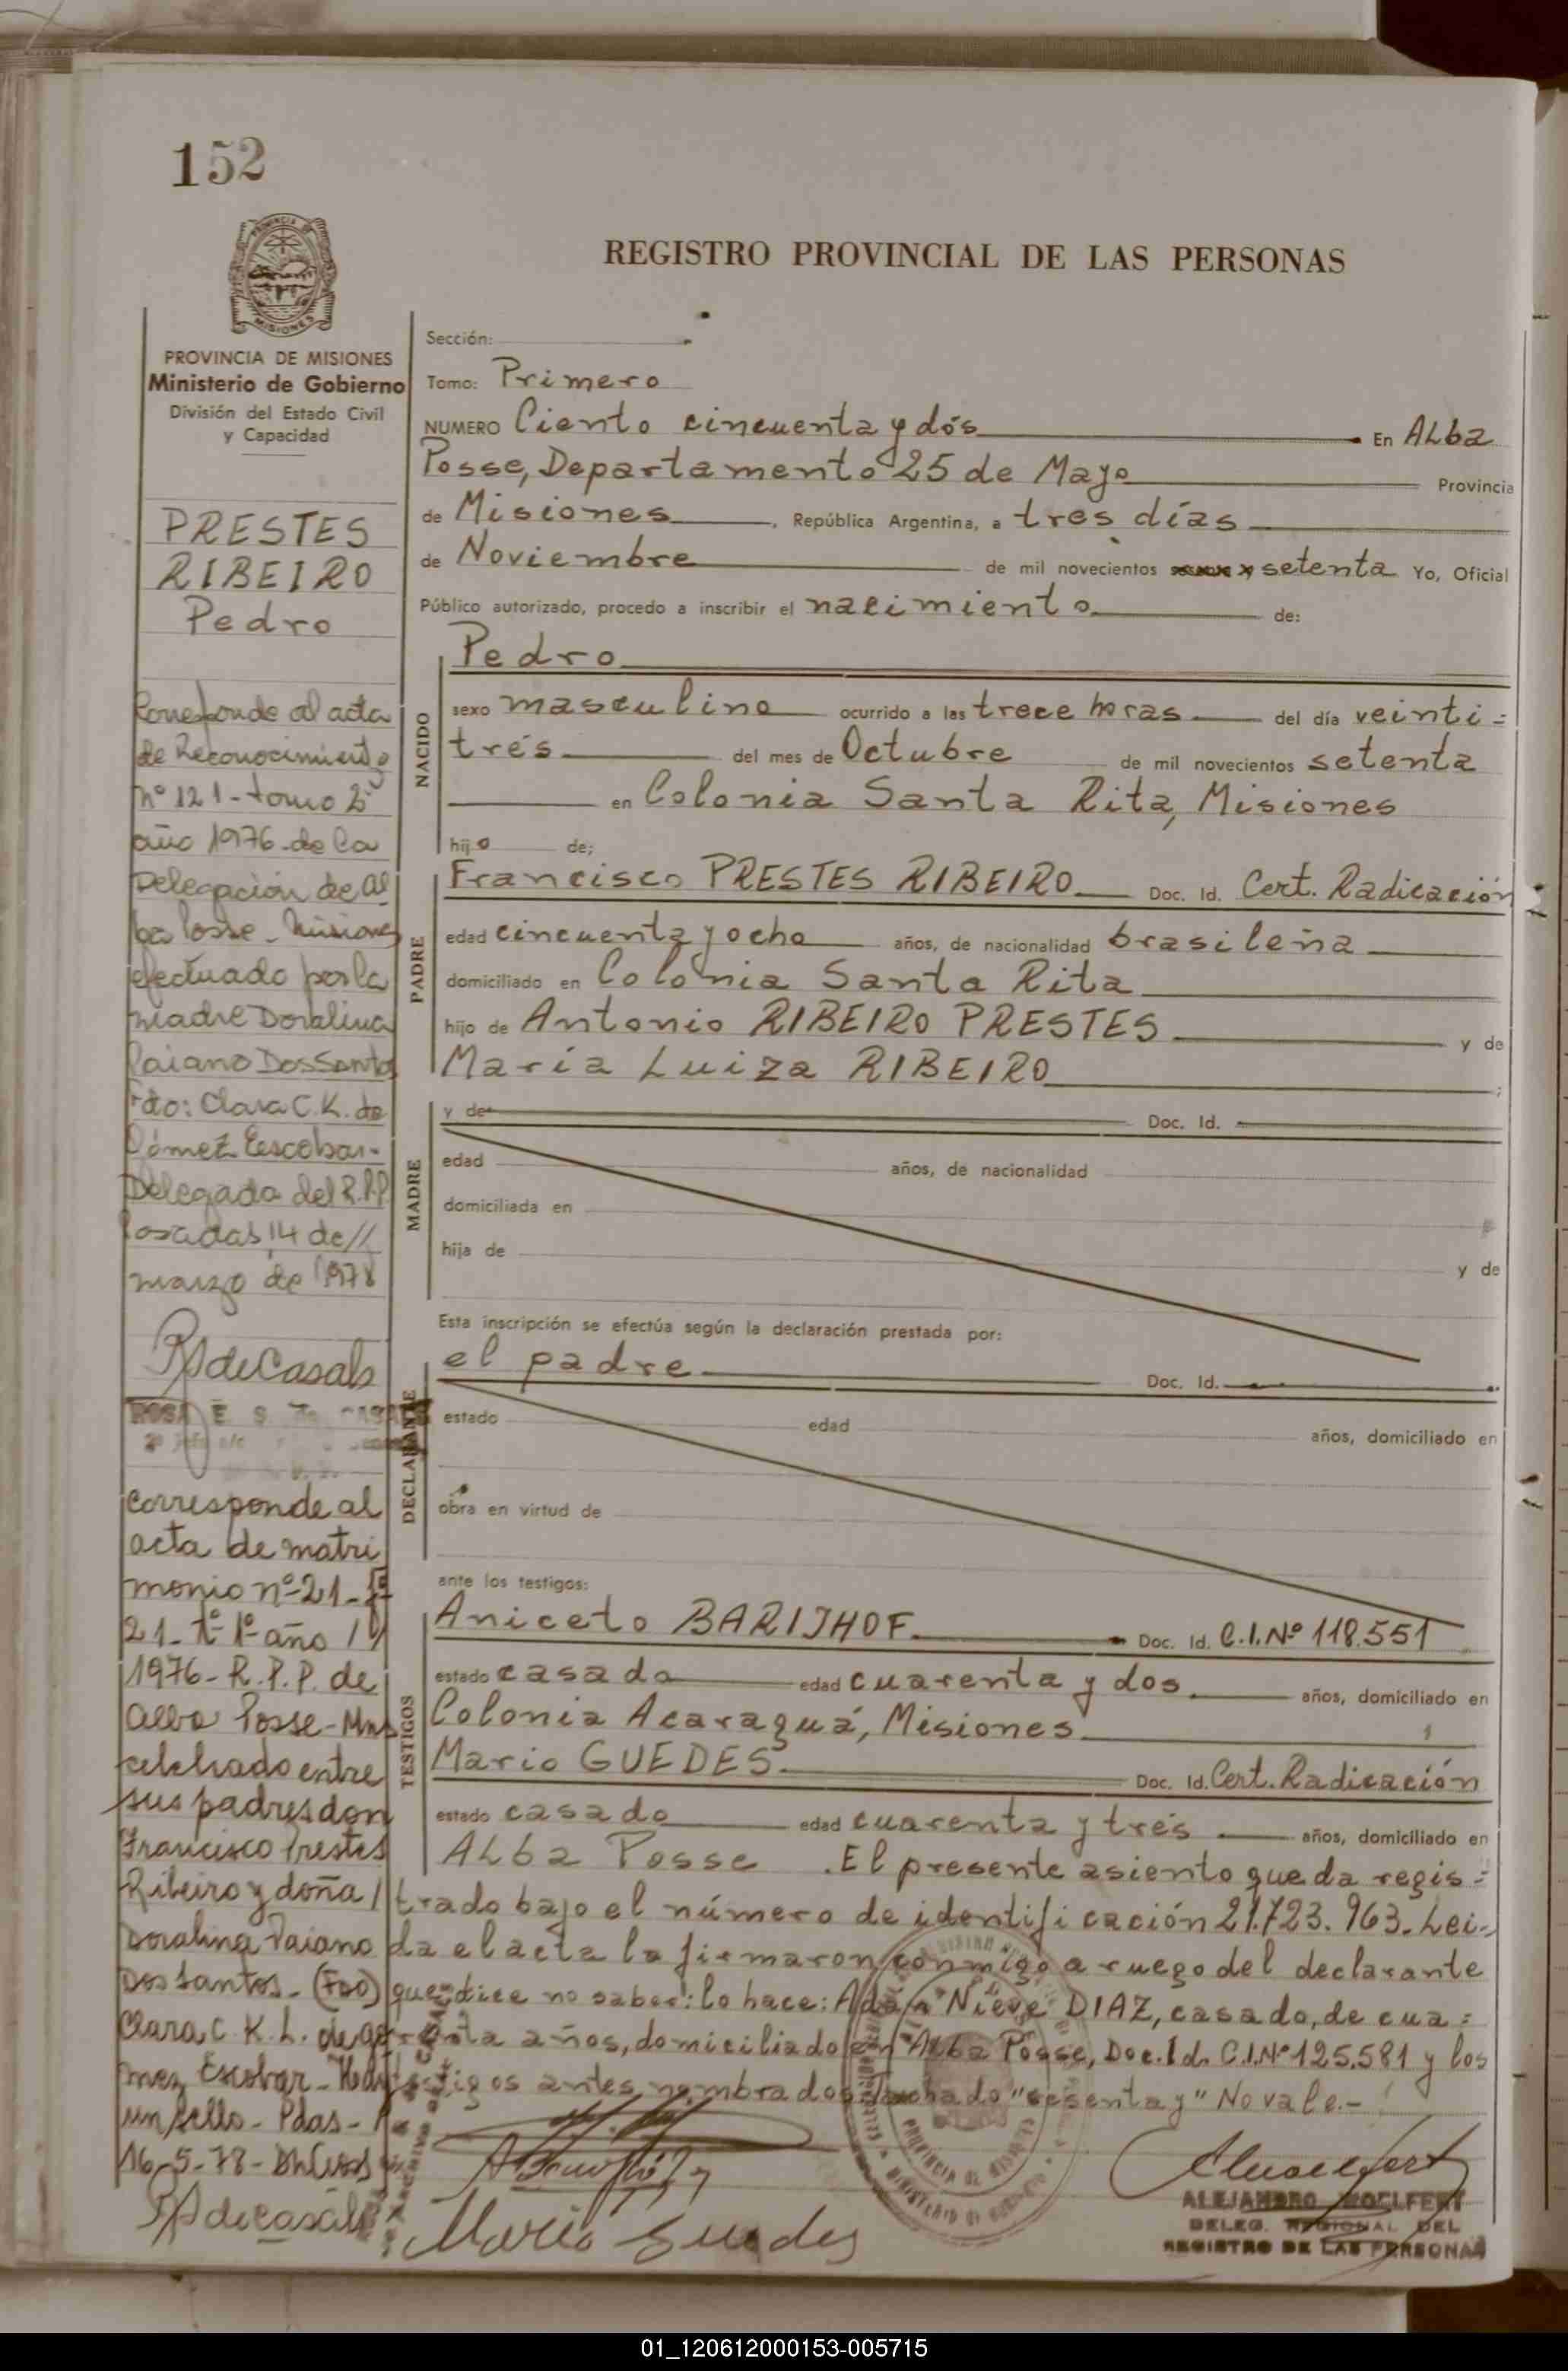 152
PROVINCIA DE
MISIONES
REGISTRO PROVINCIAL DE LAS PERSONAS
PROVINCIA DE MISIONES
Ministerio de Gobierno
División del Estado Civil
y Capacidad
PRESTES
RIBEIRO
Pedro
Corresponde al acta
de Reconocimiento
nº 121 - tomo 2º
año 1976 - de la
Delegación de Al
ba Posse - Misiones
efectuado por la
madre Doralina
Paiano Dos Santos
Fdo: Clara C. K. de
Gómez Escobar -
Delegada del R.P.P.
Posadas, 14 de //
marzo de 1978
RAdeCasals
corresponde al
acta de matri
monio nº 21 - fº
21 - Tº 1º año //
1976 - R. P. P. de
Alba Posse - Mns
celebrado entre
sus padres don
Francisco Prestes
Ribeiro y doña /
Doralina Paiano
Dos Santos - (Fdo)
Clara C. K. L. de Gó
mez Escobar - Hay
un sello - Pdas -
16-5-78 -
RAdeCasals
Sección:
Tomo: Primero
NUMERO Ciento cincuenta y dós En ALba
Posse, Departamento 25 de Mayo Provincia
de Misiones, República Argentina, a tres días
de Noviembre de mil novecientos setenta Yo, Oficial
Público autorizado, procedo a inscribir el nacimiento de:
NACIDO
Pedro
sexo masculino ocurrido a las trece horas del día veinti=
trés del mes de Octubre de mil novecientos setenta
en Colonia Santa Rita, Misiones
hijo de;
PADRE
Francisco PRESTES RIBEIRO Doc. Id. Cert. Radicación
edad cincuenta y ocho años, de nacionalidad brasileña
domiciliado en Colonia Santa Rita
hijo de Antonio RIBEIRO PRESTES y de
María Luiza RIBEIRO ;
MADRE
y de Doc. Id.
edad años, de nacionalidad
domiciliada en
hija de y de
Esta inscripción se efectúa según la declaración prestada por:
DECLARANTE
el padre Doc. Id.
estado edad años, domiciliado en
obra en virtud de
ante los testigos:
TESTIGOS
Aniceto BARIJHOF Doc. Id. C.I.Nº 118.551
estado casado edad cuarenta y dos años, domiciliado en
Colonia Acaraguá, Misiones
Mario GUEDES Doc. Id. Cert. Radicación
estado casado edad cuarenta y trés años, domiciliado en
ALba Posse .El presente asiento queda regis=
trado bajo el número de identificación 21.723.963. Lei-
da el acta la firmaron conmigo a ruego del declarante
que dice no saber: lo hace: Adán Nieve DIAZ, casado, de cua=
renta años, domiciliado en Alba Posse, Doc. Id. C.I.Nº 125.581 y los
testigos antes nombrados. Tachado "sesenta y" No vale.-
Mario Guedes
ALEJANDRO WOELFERT
DELEG. REGIONAL DEL
REGISTRO DE LAS PERSONAS
01_120612000153-005715